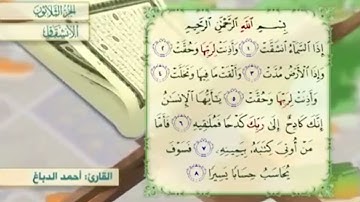 الجزء الثلاثون
الانشقاق
بِسْمِ اللَّهِ الرَّحْمَٰنِ الرَّحِيمِ
إِذَا السَّمَاءُ انشَقَّتْ ١ وَأَذِنَتْ لِرَبِّهَا وَحُقَّتْ ٢
وَإِذَا الْأَرْضُ مُدَّتْ ٣ وَأَلْقَتْ مَا فِيهَا وَتَخَلَّتْ ٤
وَأَذِنَتْ لِرَبِّهَا وَحُقَّتْ ٥ يَا أَيُّهَا الْإِنسَانُ
إِنَّكَ كَادِحٌ إِلَىٰ رَبِّكَ كَدْحًا فَمُلَاقِيهِ ٦ فَأَمَّا
مَنْ أُوتِيَ كِتَابَهُ بِيَمِينِهِ ٧ فَسَوْفَ
يُحَاسَبُ حِسَابًا يَسِيرًا ٨
القارئ: أحمد الدباغ